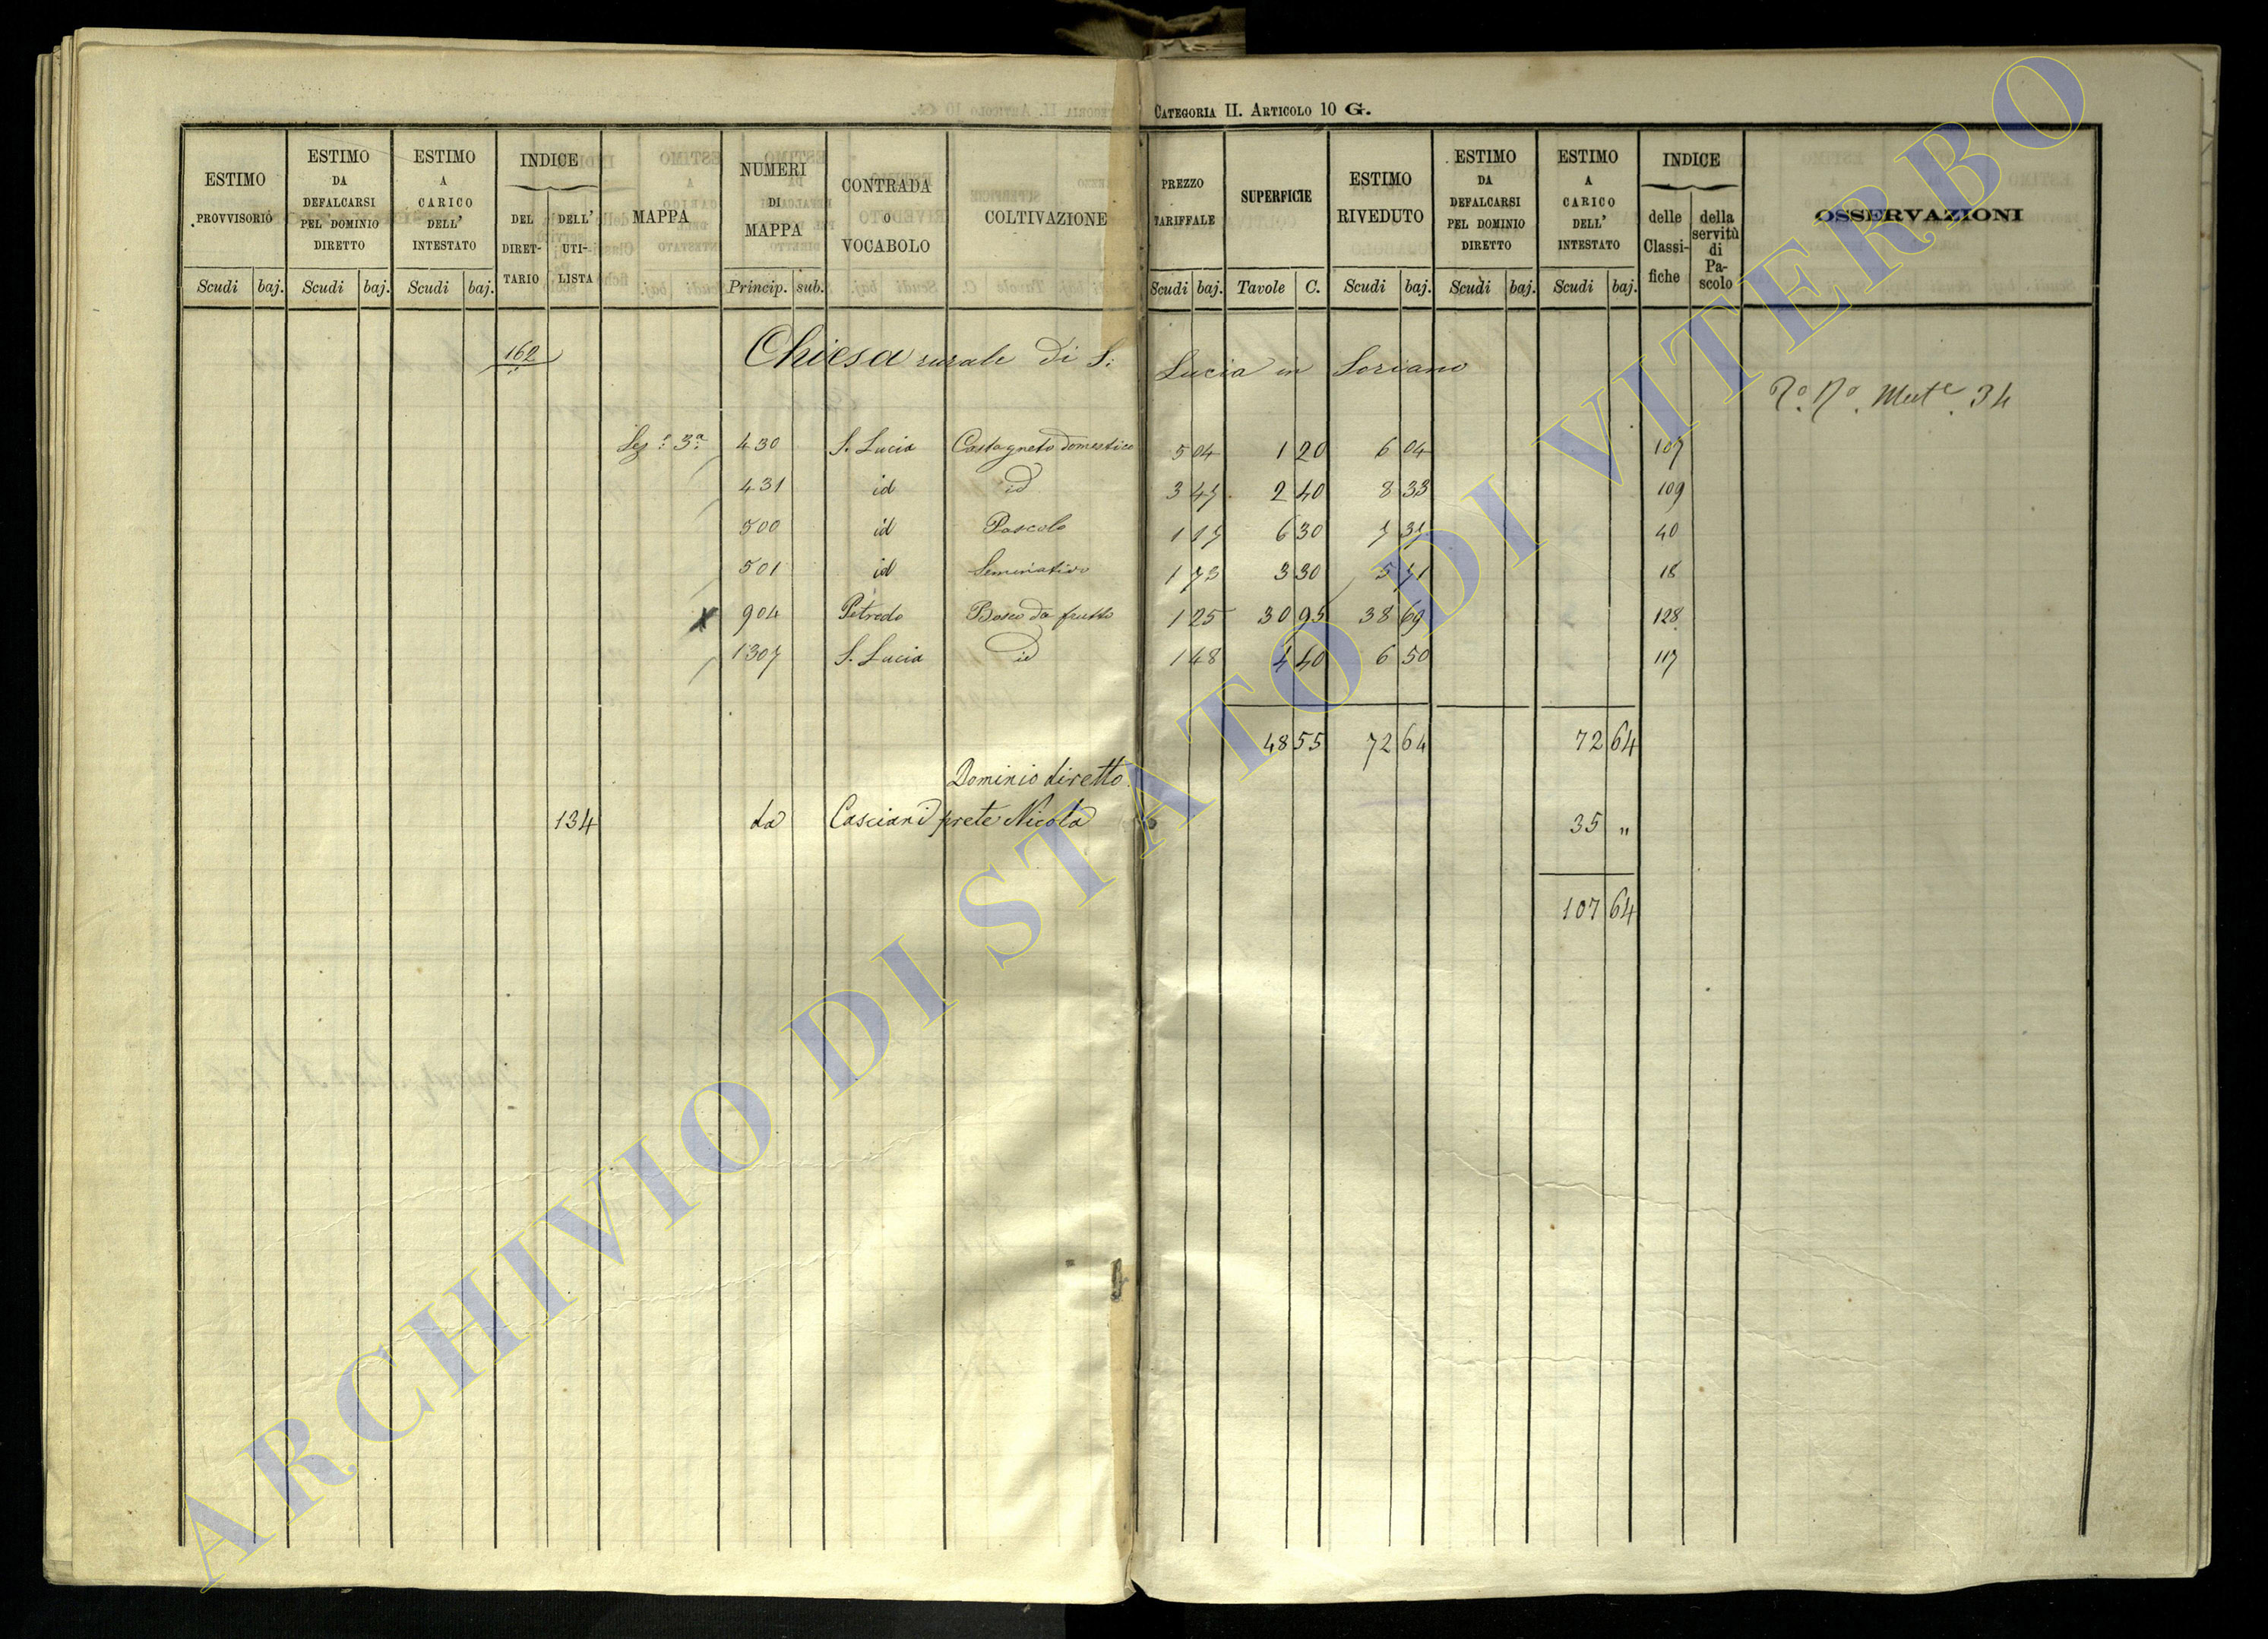 CATEGORIA II. ARTICOLO 10 G.
ESTIMO PROVVISORIO Scudi baj.
ESTIMO DA DEFALCARSI PEL DOMINIO DIRETTO Scudi baj.
ESTIMO A CARICO DELL' INTESTATO Scudi baj.
INDICE DEL DIRETTARIO DELL' UTILISTA
MAPPA
NUMERI DI MAPPA Princip. sub.
CONTRADA O VOCABOLO
COLTIVAZIONE
PREZZO TARIFFALE Scudi baj.
SUPERFICIE Tavole C.
ESTIMO RIVEDUTO Scudi baj.
ESTIMO DA DEFALCARSI PEL DOMINIO DIRETTO Scudi baj.
ESTIMO A CARICO DELL' INTESTATO Scudi baj.
INDICE delle Classifiche della servitù di Pascolo
OSSERVAZIONI
162 Chiesa rurale di S: Lucia in Soriano
Mut.e 34
Sez: 3a 430 S. Lucia Castagneto domestico 5 04 1 20 6 04 107
431 id id 3 47 2 40 8 33 109
500 id Pascolo 1 17 6 30 7 37 40
501 id Seminativo 1 73 3 30 5 71 18
x 904 Petredo Bosco da frutto 1 25 30 95 38 69 128
1307 S. Lucia id 1 48 4 40 6 50 117
48 55 72 64 72 64
Dominio diretto
134 da Casciani prete Nicola 35 "
107 64
ARCHIVIO DI STATO DI VITERBO